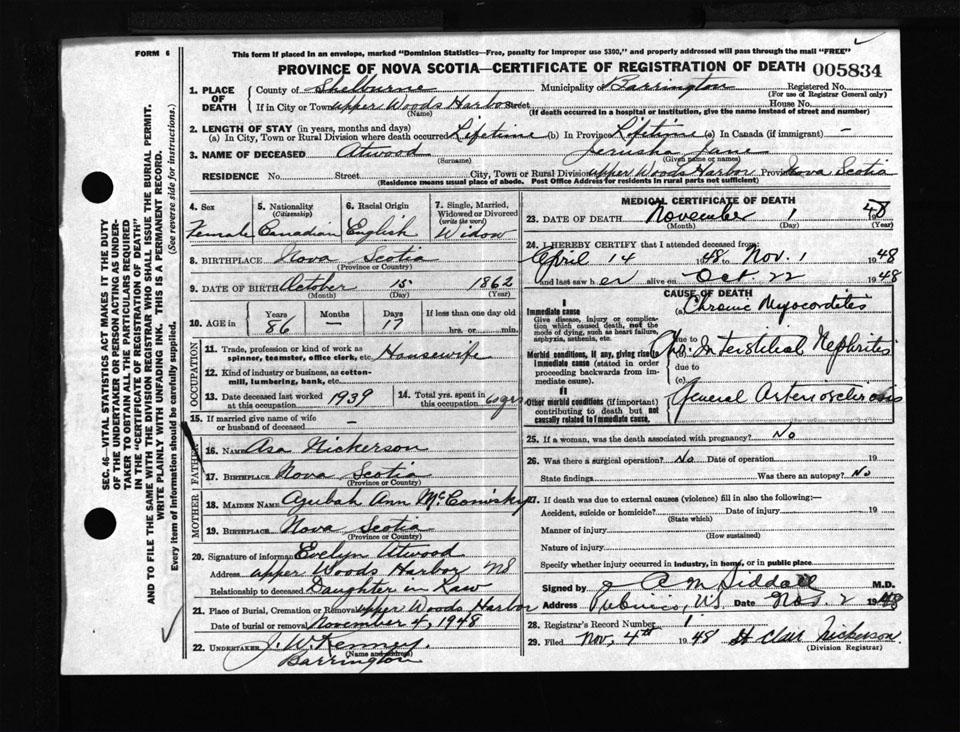 FORM 6
This form if placed in an envelope, marked "Dominion Statistics—Free, penalty for improper use $300," and properly addressed will pass through the mail "FREE"
PROVINCE OF NOVA SCOTIA—CERTIFICATE OF REGISTRATION OF DEATH 005834
1. PLACE OF DEATH
County of Shelburne Municipality of Barrington Registered No.
(For use of Registrar General only)
If in City or Town Upper Woods Harbor Street House No.
(Name) (If death occurred in a hospital or institution, give the name instead of street and number)
2. LENGTH OF STAY (in years, months and days)
(a) In City, Town or Rural Division where death occurred Lifetime (b) In Province Lifetime (c) In Canada (if immigrant) —
3. NAME OF DECEASED Atwood Jerusha Jane
(Surname) (Given name or names)
RESIDENCE No. Street City, Town or Rural Division Upper Woods Harbor Province Nova Scotia
(Residence means usual place of abode. Post Office Address for residents in rural parts not sufficient)
4. Sex Female
5. Nationality (Citizenship) Canadian
6. Racial Origin English
7. Single, Married, Widowed or Divorced (write the word) Widow
8. BIRTHPLACE Nova Scotia
(Province or Country)
9. DATE OF BIRTH October 15 1862
(Month) (Day) (Year)
10. AGE in Years 86 Months — Days 17 If less than one day old hrs. or min.
OCCUPATION
11. Trade, profession or kind of work as spinner, teamster, office clerk, etc. Housewife
12. Kind of industry or business, as cotton-mill, lumbering, bank, etc.
13. Date deceased last worked at this occupation 1939
14. Total yrs. spent in this occupation 60 yrs
15. If married give name of wife or husband of deceased —
FATHER
16. NAME Asa Nickerson
17. BIRTHPLACE Nova Scotia
(Province or Country)
MOTHER
18. MAIDEN NAME Azubah Ann McComisky
19. BIRTHPLACE Nova Scotia
(Province or Country)
20. Signature of informant Evelyn Atwood
Address Upper Woods Harbor NS
Relationship to deceased Daughter in Law
21. Place of Burial, Cremation or Removal Upper Woods Harbor
Date of burial or removal November 4, 1948
22. UNDERTAKER J. W. Kenney.
(Name and address)
Barrington
MEDICAL CERTIFICATE OF DEATH
23. DATE OF DEATH November 1 48
(Month) (Day) (Year)
24. I HEREBY CERTIFY that I attended deceased from:
April 14 1948 to Nov. 1 1948
and last saw her alive on Oct. 22 1948
CAUSE OF DEATH
I
Immediate cause
Give disease, injury or complication which caused death, not the mode of dying, such as heart failure, asphyxia, asthenia, etc.
(a) Chronic Myocorditis
due to
Morbid conditions, if any, giving rise to immediate cause (stated in order proceeding backwards from immediate cause).
Chr. Interstitial Nephritis
due to
(c)
II
Other morbid conditions (if important) contributing to death but not causally related to immediate cause.
General Arteriosclerosis
25. If a woman, was the death associated with pregnancy? No
26. Was there a surgical operation? No Date of operation 19
State findings Was there an autopsy? No
27. If death was due to external causes (violence) fill in also the following:—
Accident, suicide or homicide? Date of injury 19
(State which)
Manner of injury
(How sustained)
Nature of injury
Specify whether injury occurred in industry, in home, or in public place
Signed by A M Siddall M.D.
Address Pubnico, NS. Date Nov. 2 1948
28. Registrars Record Number 1
29. Filed Nov, 4th 1948 St Clair Nickerson.
(Division Registrar)
SEC. 46—VITAL STATISTICS ACT MAKES IT THE DUTY
OF THE UNDERTAKER OR PERSON ACTING AS UNDER-
TAKER TO OBTAIN ALL THE PARTICULARS REQUIRED
IN THE "CERTIFICATE OF REGISTRATION OF DEATH"
AND TO FILE THE SAME WITH THE DIVISION REGISTRAR WHO SHALL ISSUE THE BURIAL PERMIT.
WRITE PLAINLY WITH UNFADING INK. THIS IS A PERMANENT RECORD.
Every item of Information should be carefully supplied. (See reverse side for instructions.)